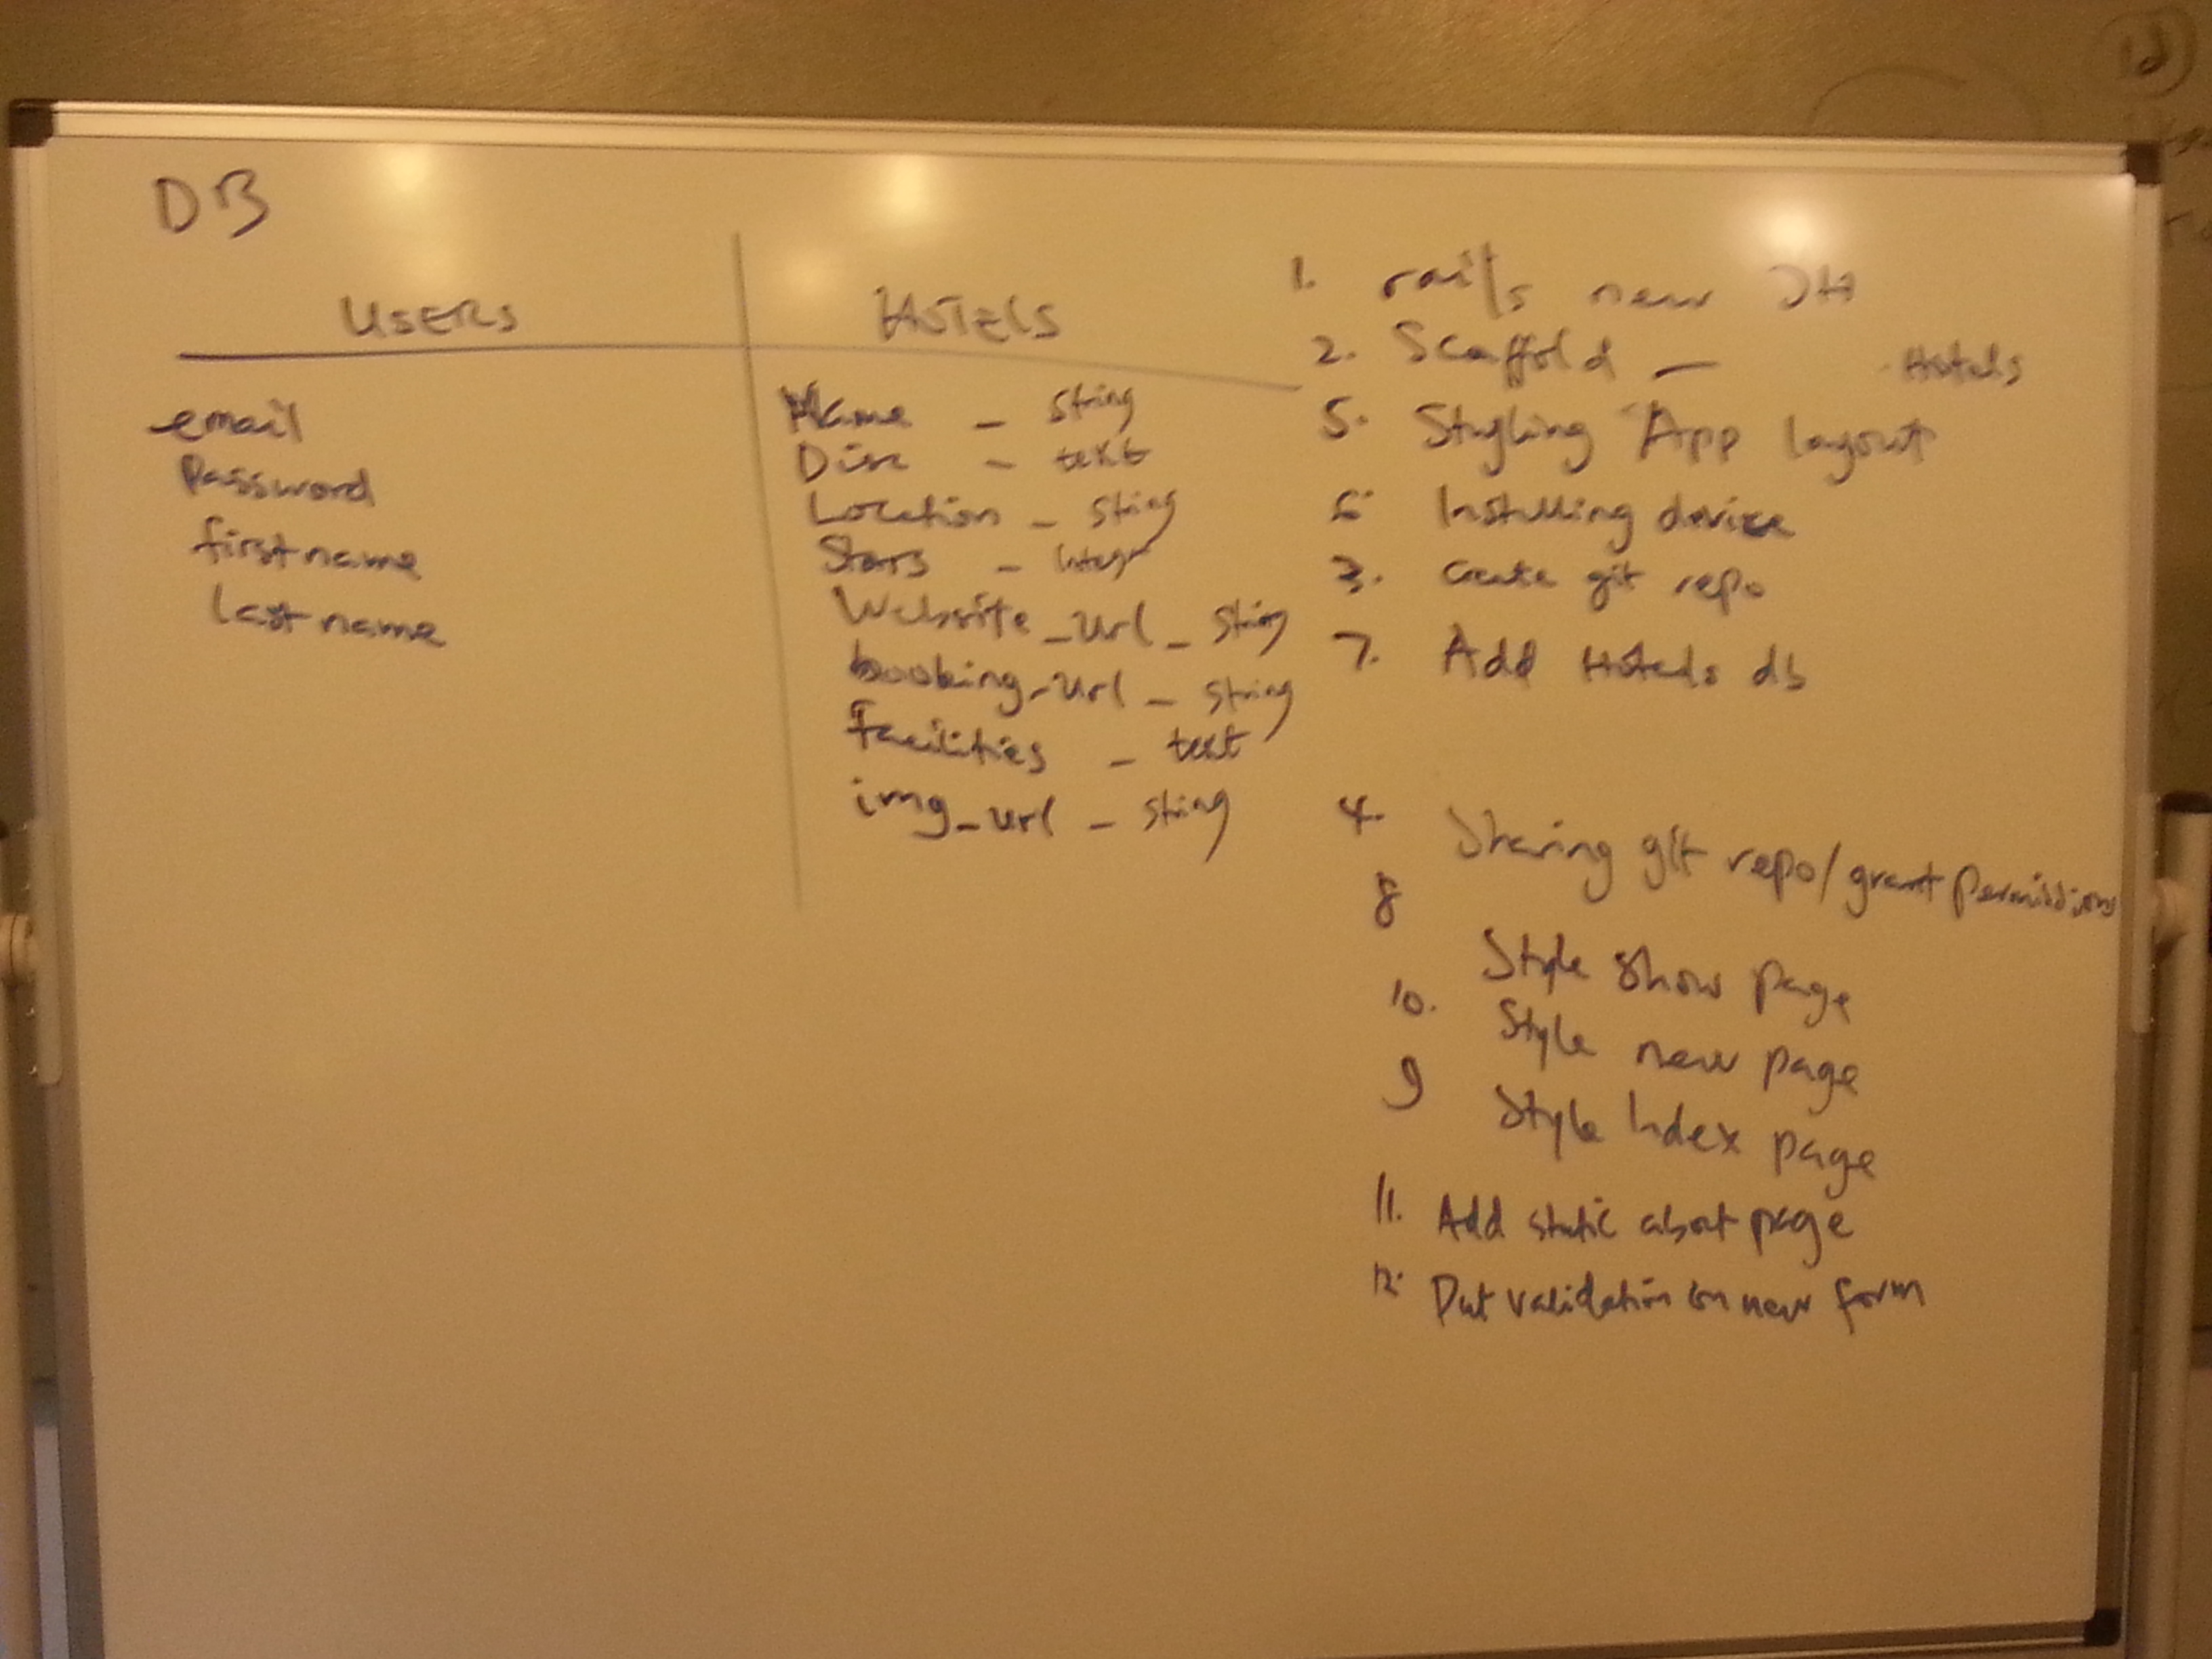 DB
USERS
email
Password
first name
last name
HOTELS
Name - String
Disc - text
Location - String
Stars - Integer
Website_Url - String
booking_Url - String
facilities - text
img_url - String
1. rails new JH
2. Scaffold - Hotels
5. Styling App layout
6. Installing device
3. Create git repo
7. Add Hotels db
4. Sharing git repo/grant permissions
8 Style show page
10. Style new page
9 Style Index page
11. Add static about page
12. Put validation on new form